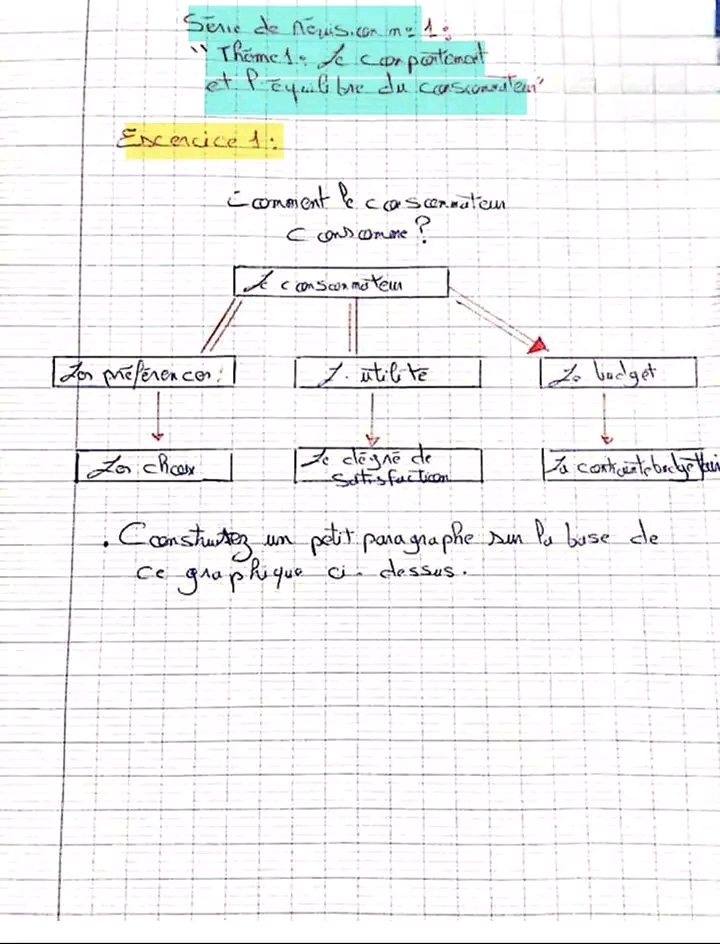 Série de révision n° 1 :
"Thème 1 : Le comportement
et l'équilibre du consommateur"
Excercice 1 :
Comment le consommateur
consomme ?
Le consommateur
Les préférences :
L'utilité
Le budget
Les choix
Le dégré de
satisfaction
La contrainte budgétair
. Construisez un petit paragraphe sur la base de
ce graphique ci-dessus.